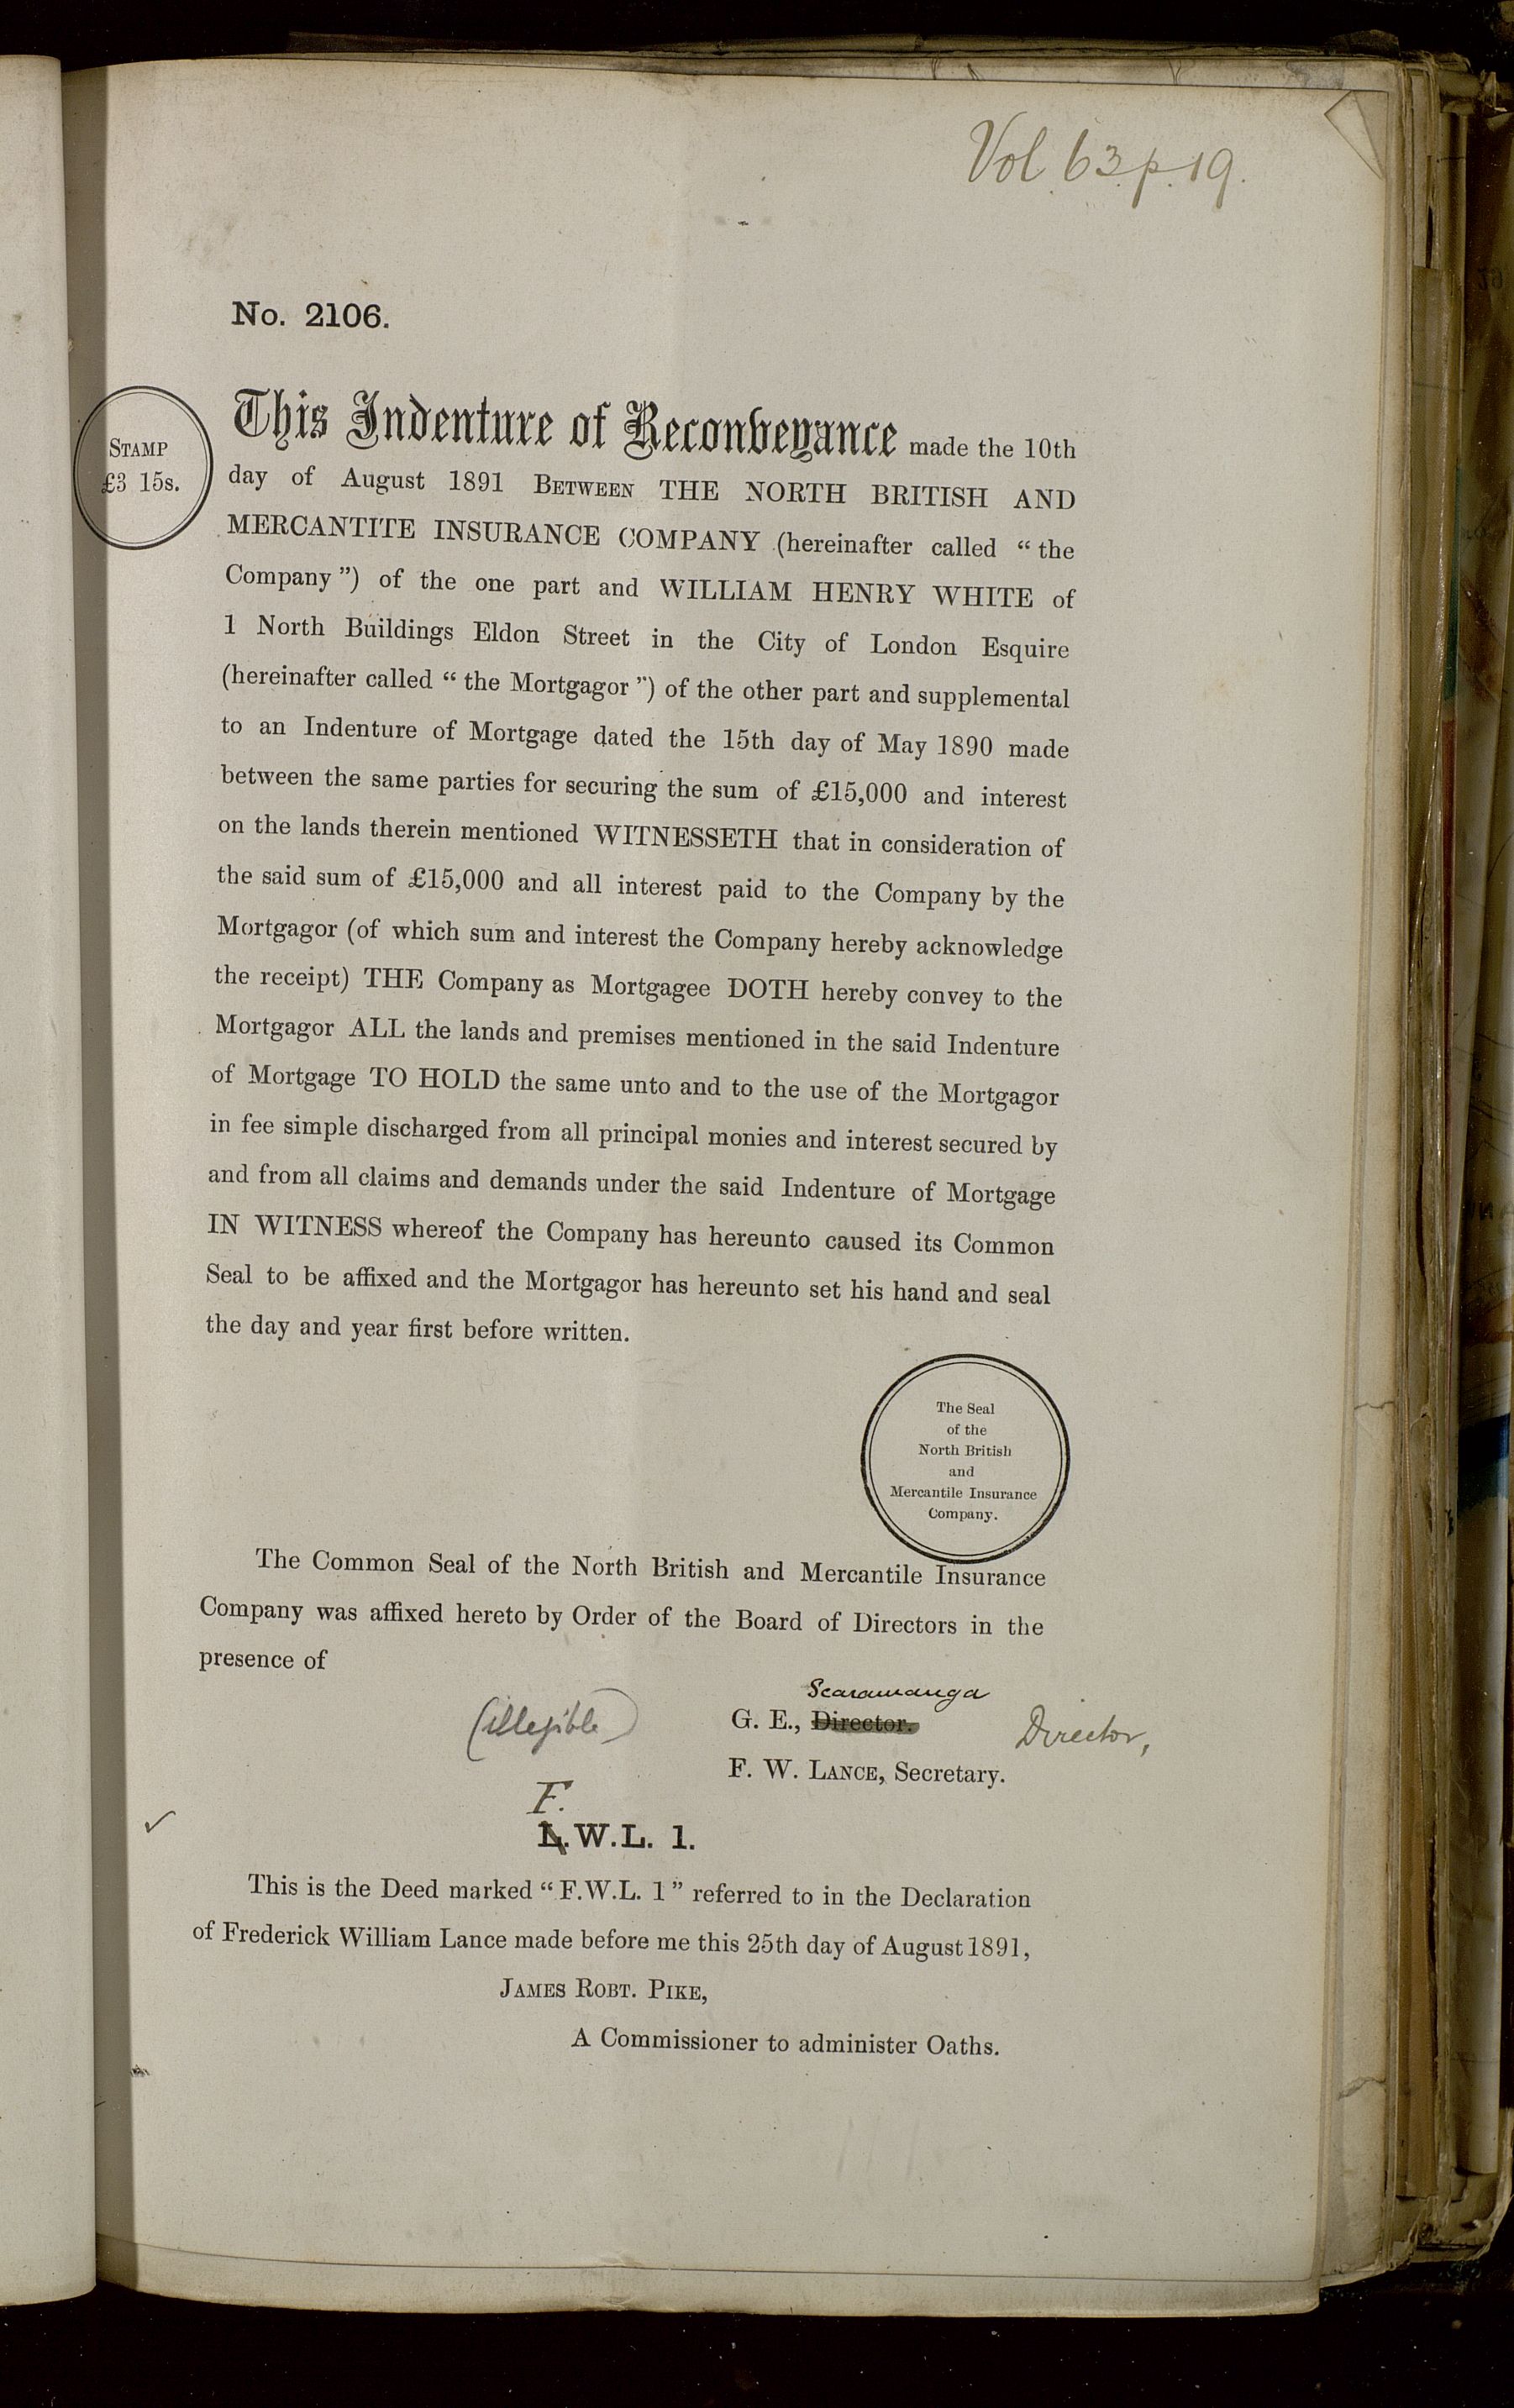 Vol. 63. p. 19.
No. 2106.
STAMP
£3 15s.
This Indenture of Reconveyance made the 10th
day of August 1891 BETWEEN THE NORTH BRITISH AND
MERCANTITE INSURANCE COMPANY (hereinafter called “ the
Company ”) of the one part and WILLIAM HENRY WHITE of
1 North Buildings Eldon Street in the City of London Esquire
(hereinafter called “ the Mortgagor ”) of the other part and supplemental
to an Indenture of Mortgage dated the 15th day of May 1890 made
between the same parties for securing the sum of £15,000 and interest
on the lands therein mentioned WITNESSETH that in consideration of
the said sum of £15,000 and all interest paid to the Company by the
Mortgagor (of which sum and interest the Company hereby acknowledge
the receipt) THE Company as Mortgagee DOTH hereby convey to the
Mortgagor ALL the lands and premises mentioned in the said Indenture
of Mortgage TO HOLD the same unto and to the use of the Mortgagor
in fee simple discharged from all principal monies and interest secured by
and from all claims and demands under the said Indenture of Mortgage
IN WITNESS whereof the Company has hereunto caused its Common
Seal to be affixed and the Mortgagor has hereunto set his hand and seal
the day and year first before written.
The Seal
of the
North British
and
Mercantile Insurance
Company.
The Common Seal of the North British and Mercantile Insurance
Company was affixed hereto by Order of the Board of Directors in the
presence of
Scaramanga
(illegible) G. E., Director. Director,
F. W. LANCE, Secretary.
F.
L.W.L. 1.
This is the Deed marked “ F.W.L. 1 ” referred to in the Declaration
of Frederick William Lance made before me this 25th day of August 1891,
JAMES ROBT. PIKE,
A Commissioner to administer Oaths.